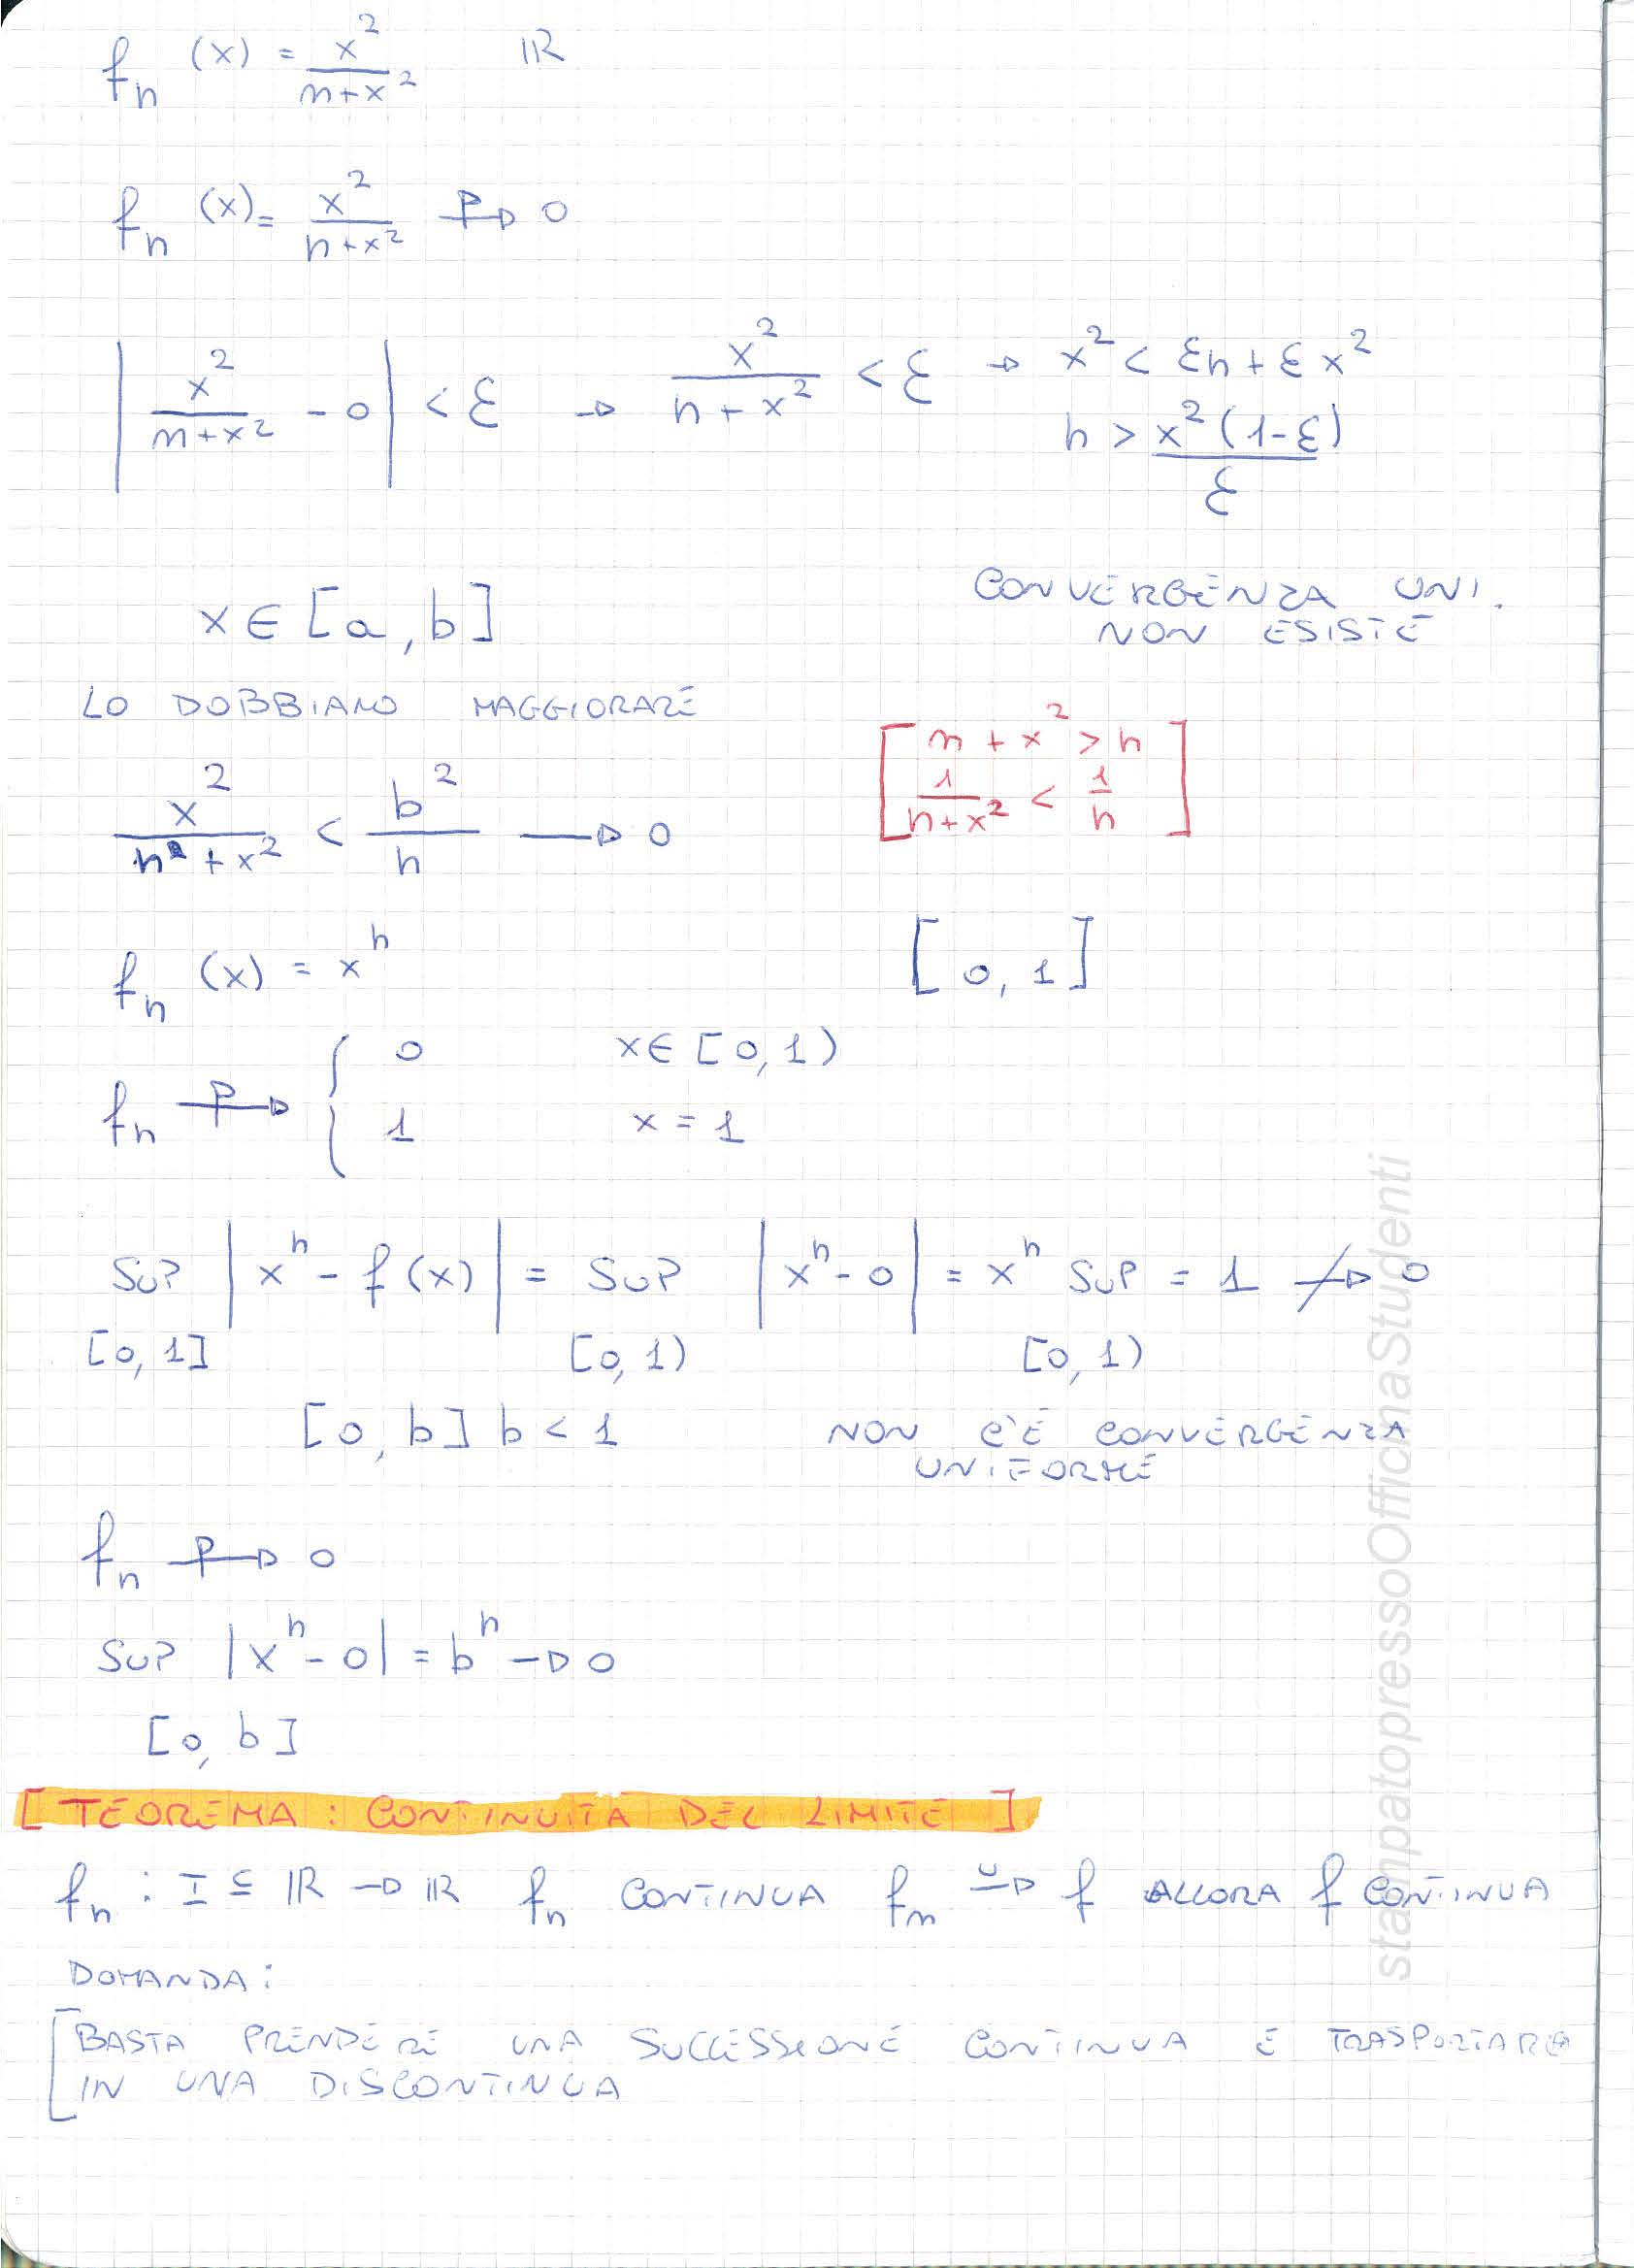 fn (x) = x²/(n+x²) ℝ
fn (x) = x²/(n+x²) P→ 0
|x²/(n+x²) - 0| < ε → x²/(n+x²) < ε → x² < εn + εx²
n > x²(1-ε)/ε
x ∈ [a, b]
CONVERGENZA UNI.
NON ESISTE
LO DOBBIAMO MAGGIORARE
[n + x² > n
1/(n+x²) < 1/n]
x²/(n + x²) < b²/n → 0
fn (x) = xⁿ [0, 1]
fn P→ { 0 x ∈ [0, 1)
1 x = 1
SUP |xⁿ - f(x)| = SUP |xⁿ - 0| = xⁿ SUP = 1 ↛ 0
[0, 1] [0, 1) [0, 1)
[0, b] b < 1 NON C'È CONVERGENZA
UNIFORME
fn P→ 0
SUP |xⁿ - 0| = bⁿ → 0
[0, b]
[TEOREMA : CONTINUITÀ DEL LIMITE]
fn : I ⊆ ℝ → ℝ fn CONTINUA fn U→ f ALLORA f CONTINUA
DOMANDA:
[BASTA PRENDERE UNA SUCCESSIONE CONTINUA E TRASPORTARLA
IN UNA DISCONTINUA
stampatopressoOfficinaStudenti